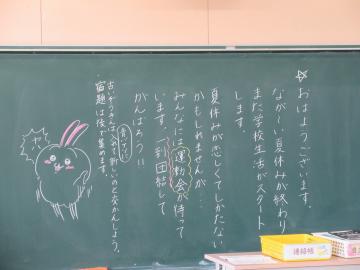 おはようございます。
なが〜い夏休みが終わり
また学校生活がスタート
します。
夏休みが恋しくてしかたない
かもしれませんが…
みんなには運動会が待って
います。一到団結して
がんばろう!!
古いぞうきんは入れて新しいのと交かんしよう。
宿題は後で集めます。
連絡帳